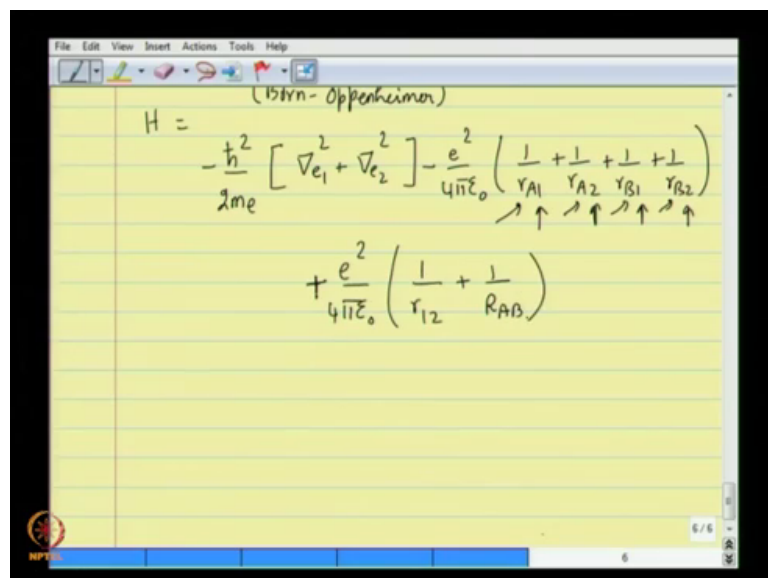 File Edit View Insert Actions Tools Help
(Born-Oppenheimer)
H =
- ħ²/2me [ ∇e₁² + ∇e₂² ] - e²/4πε₀ ( 1/rA1 + 1/rA2 + 1/rB1 + 1/rB2 )
+ e²/4πε₀ ( 1/r12 + 1/RAB )
6/6
NPTEL
6